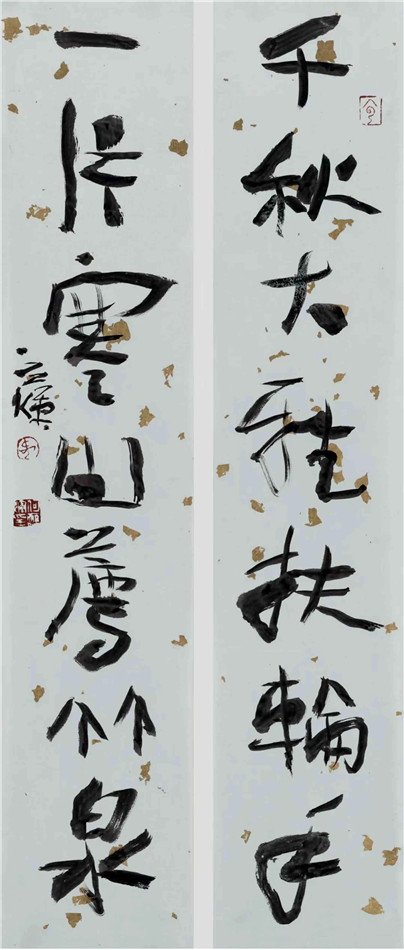 千秋大雅扶輪手
一片寒山薦竹泉